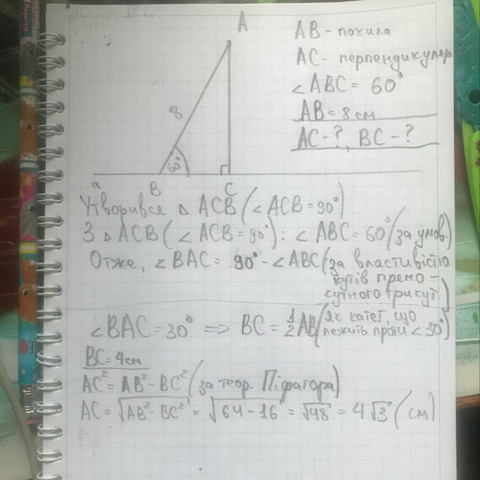 A
AB - похила
AC - перпендикуляр
∠ABC = 60°
AB = 8 см
AC - ?, BC - ?
8
60°
a B C
Утворився △ ACB (∠ACB = 90°)
З △ ACB (∠ACB = 90°): ∠ABC = 60° (за умов)
Отже, ∠BAC = 90° - ∠ABC (за властивістю
кутів прямо -
кутного трикут.)
∠BAC = 30° ⇒ BC = 1/2 AB (як катет, що
лежить проти ∠30°)
BC = 4 см
AC² = AB² - BC² (за теор. Піфагора)
AC = √AB² - BC² = √64 - 16 = √48 = 4√3 (см)